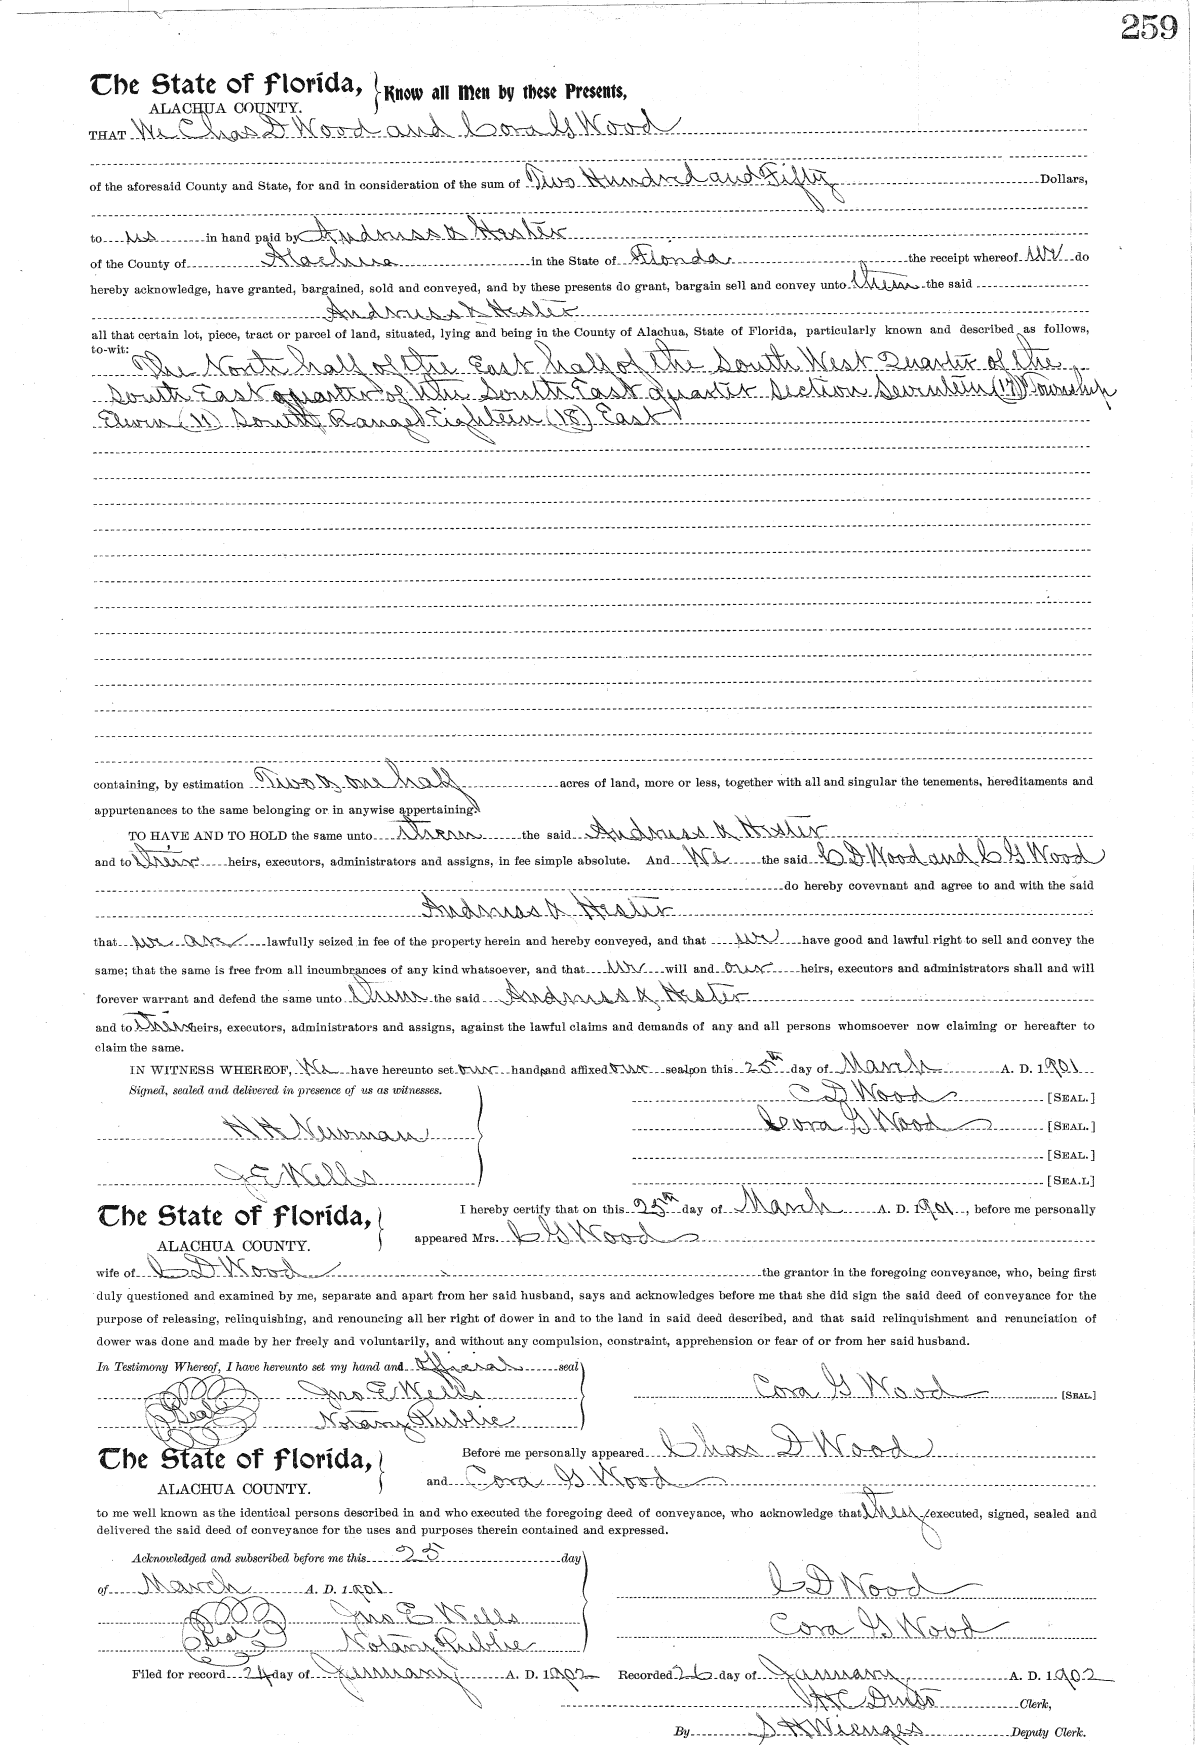 259
The State of Florida, Know all Men by these Presents,
ALACHUA COUNTY.
THAT We Chas D Wood and Cora G Wood
of the aforesaid County and State, for and in consideration of the sum of Two Hundred and Fifty Dollars,
to us in hand paid by Andruss & Hester
of the County of Alachua in the State of Florida the receipt whereof we do
hereby acknowledge, have granted, bargained, sold and conveyed, and by these presents do grant, bargain sell and convey unto them the said
Andruss & Hester
all that certain lot, piece, tract or parcel of land, situated, lying and being in the County of Alachua, State of Florida, particularly known and described as follows,
to-wit: The North half of the East half of the South West Quarter of the
South East quarter of the South East quarter Section Seventeen (17) Township
Eleven (11) South Range Eighteen (18) East
containing, by estimation Two & one half acres of land, more or less, together with all and singular the tenements, hereditaments and
appurtenances to the same belonging or in anywise appertaining.
TO HAVE AND TO HOLD the same unto them the said Andruss & Hester
and to their heirs, executors, administrators and assigns, in fee simple absolute. And We the said C D Wood and C G Wood
do hereby covevnant and agree to and with the said
Andruss & Hester
that we are lawfully seized in fee of the property herein and hereby conveyed, and that we have good and lawful right to sell and convey the
same; that the same is free from all incumbrances of any kind whatsoever, and that we will and our heirs, executors and administrators shall and will
forever warrant and defend the same unto them the said Andruss & Hester
and to their heirs, executors, administrators and assigns, against the lawful claims and demands of any and all persons whomsoever now claiming or hereafter to
claim the same.
IN WITNESS WHEREOF, We have hereunto set our hands and affixed our seals on this 25th day of March A. D. 1901
Signed, sealed and delivered in presence of us as witnesses. C D Wood [SEAL.]
H H Newman Cora G Wood [SEAL.]
[SEAL.]
J E Wells [SEA.L]
The State of Florida, I hereby certify that on this 25th day of March A. D. 1901, before me personally
ALACHUA COUNTY. appeared Mrs. C G Wood
wife of C D Wood the grantor in the foregoing conveyance, who, being first
duly questioned and examined by me, separate and apart from her said husband, says and acknowledges before me that she did sign the said deed of conveyance for the
purpose of releasing, relinquishing, and renouncing all her right of dower in and to the land in said deed described, and that said relinquishment and renunciation of
dower was done and made by her freely and voluntarily, and without any compulsion, constraint, apprehension or fear of or from her said husband.
In Testimony Whereof, I have hereunto set my hand and official seal
Jno E Wells Cora G Wood [SEAL.]
Seal Notary Public
The State of Florida, Before me personally appeared Chas D Wood
ALACHUA COUNTY. and Cora G Wood
to me well known as the identical persons described in and who executed the foregoing deed of conveyance, who acknowledge that they executed, signed, sealed and
delivered the said deed of conveyance for the uses and purposes therein contained and expressed.
Acknowledged and subscribed before me this 25 day
of March A. D. 1901 C D Wood
Jno E Wells Cora G Wood
Seal Notary Public
Filed for record 24 day of January A. D. 1902 Recorded 26 day of January A. D. 1902
H C Clerk,
By S H Wienges Deputy Clerk.